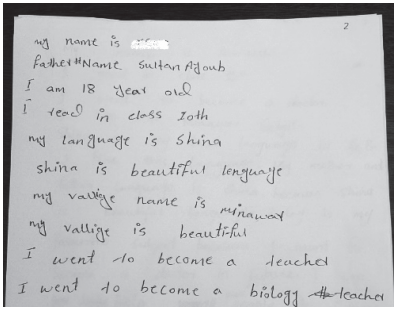 2
my name is
father#Name Sultan Ajoub
I am 18 year old
I read in class 10th
my language is Shina
shina is beautiful lenguage
my vallige name is minawar
my vallige is beautiful
I went to become a teacher
I went to become a biology teacher